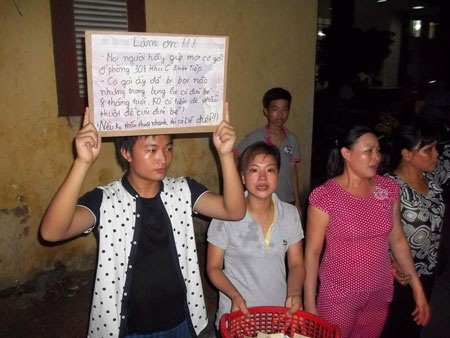 Làm ơn !!!
- Mọi người hãy giúp mở cô gái
ở phòng 301 Khu C
- Cô gái ấy đã bị bại não
nhưng trong bụng lại có đứa bé
9 tháng tuổi. Ko có tiền để phẫu
thuật để cứu đứa bé !
Nếu ko phẫu thuật nhanh thì cả 2 sẽ chết !!!